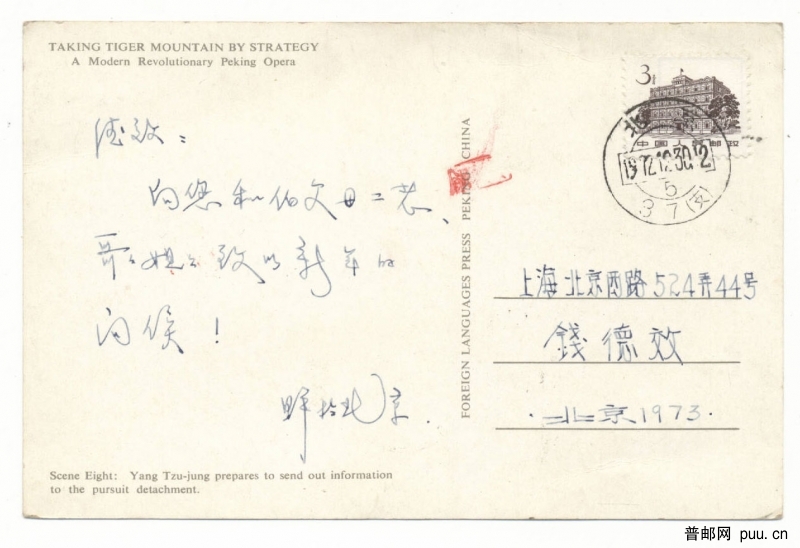 TAKING TIGER MOUNTAIN BY STRATEGY
A Modern Revolutionary Peking Opera
德效：
向您和伯父母二老、
哥哥姐姐致以新年的
问候！
于北京.
Scene Eight: Yang Tzu-jung prepares to send out information
to the pursuit detachment.
FOREIGN LANGUAGES PRESS PEKING CHINA
3
中国人民邮政
北京
1972.12.30.12
5
37(支)
上海北京西路524弄44号
錢德效
·北京1973·
普邮网 puu.cn